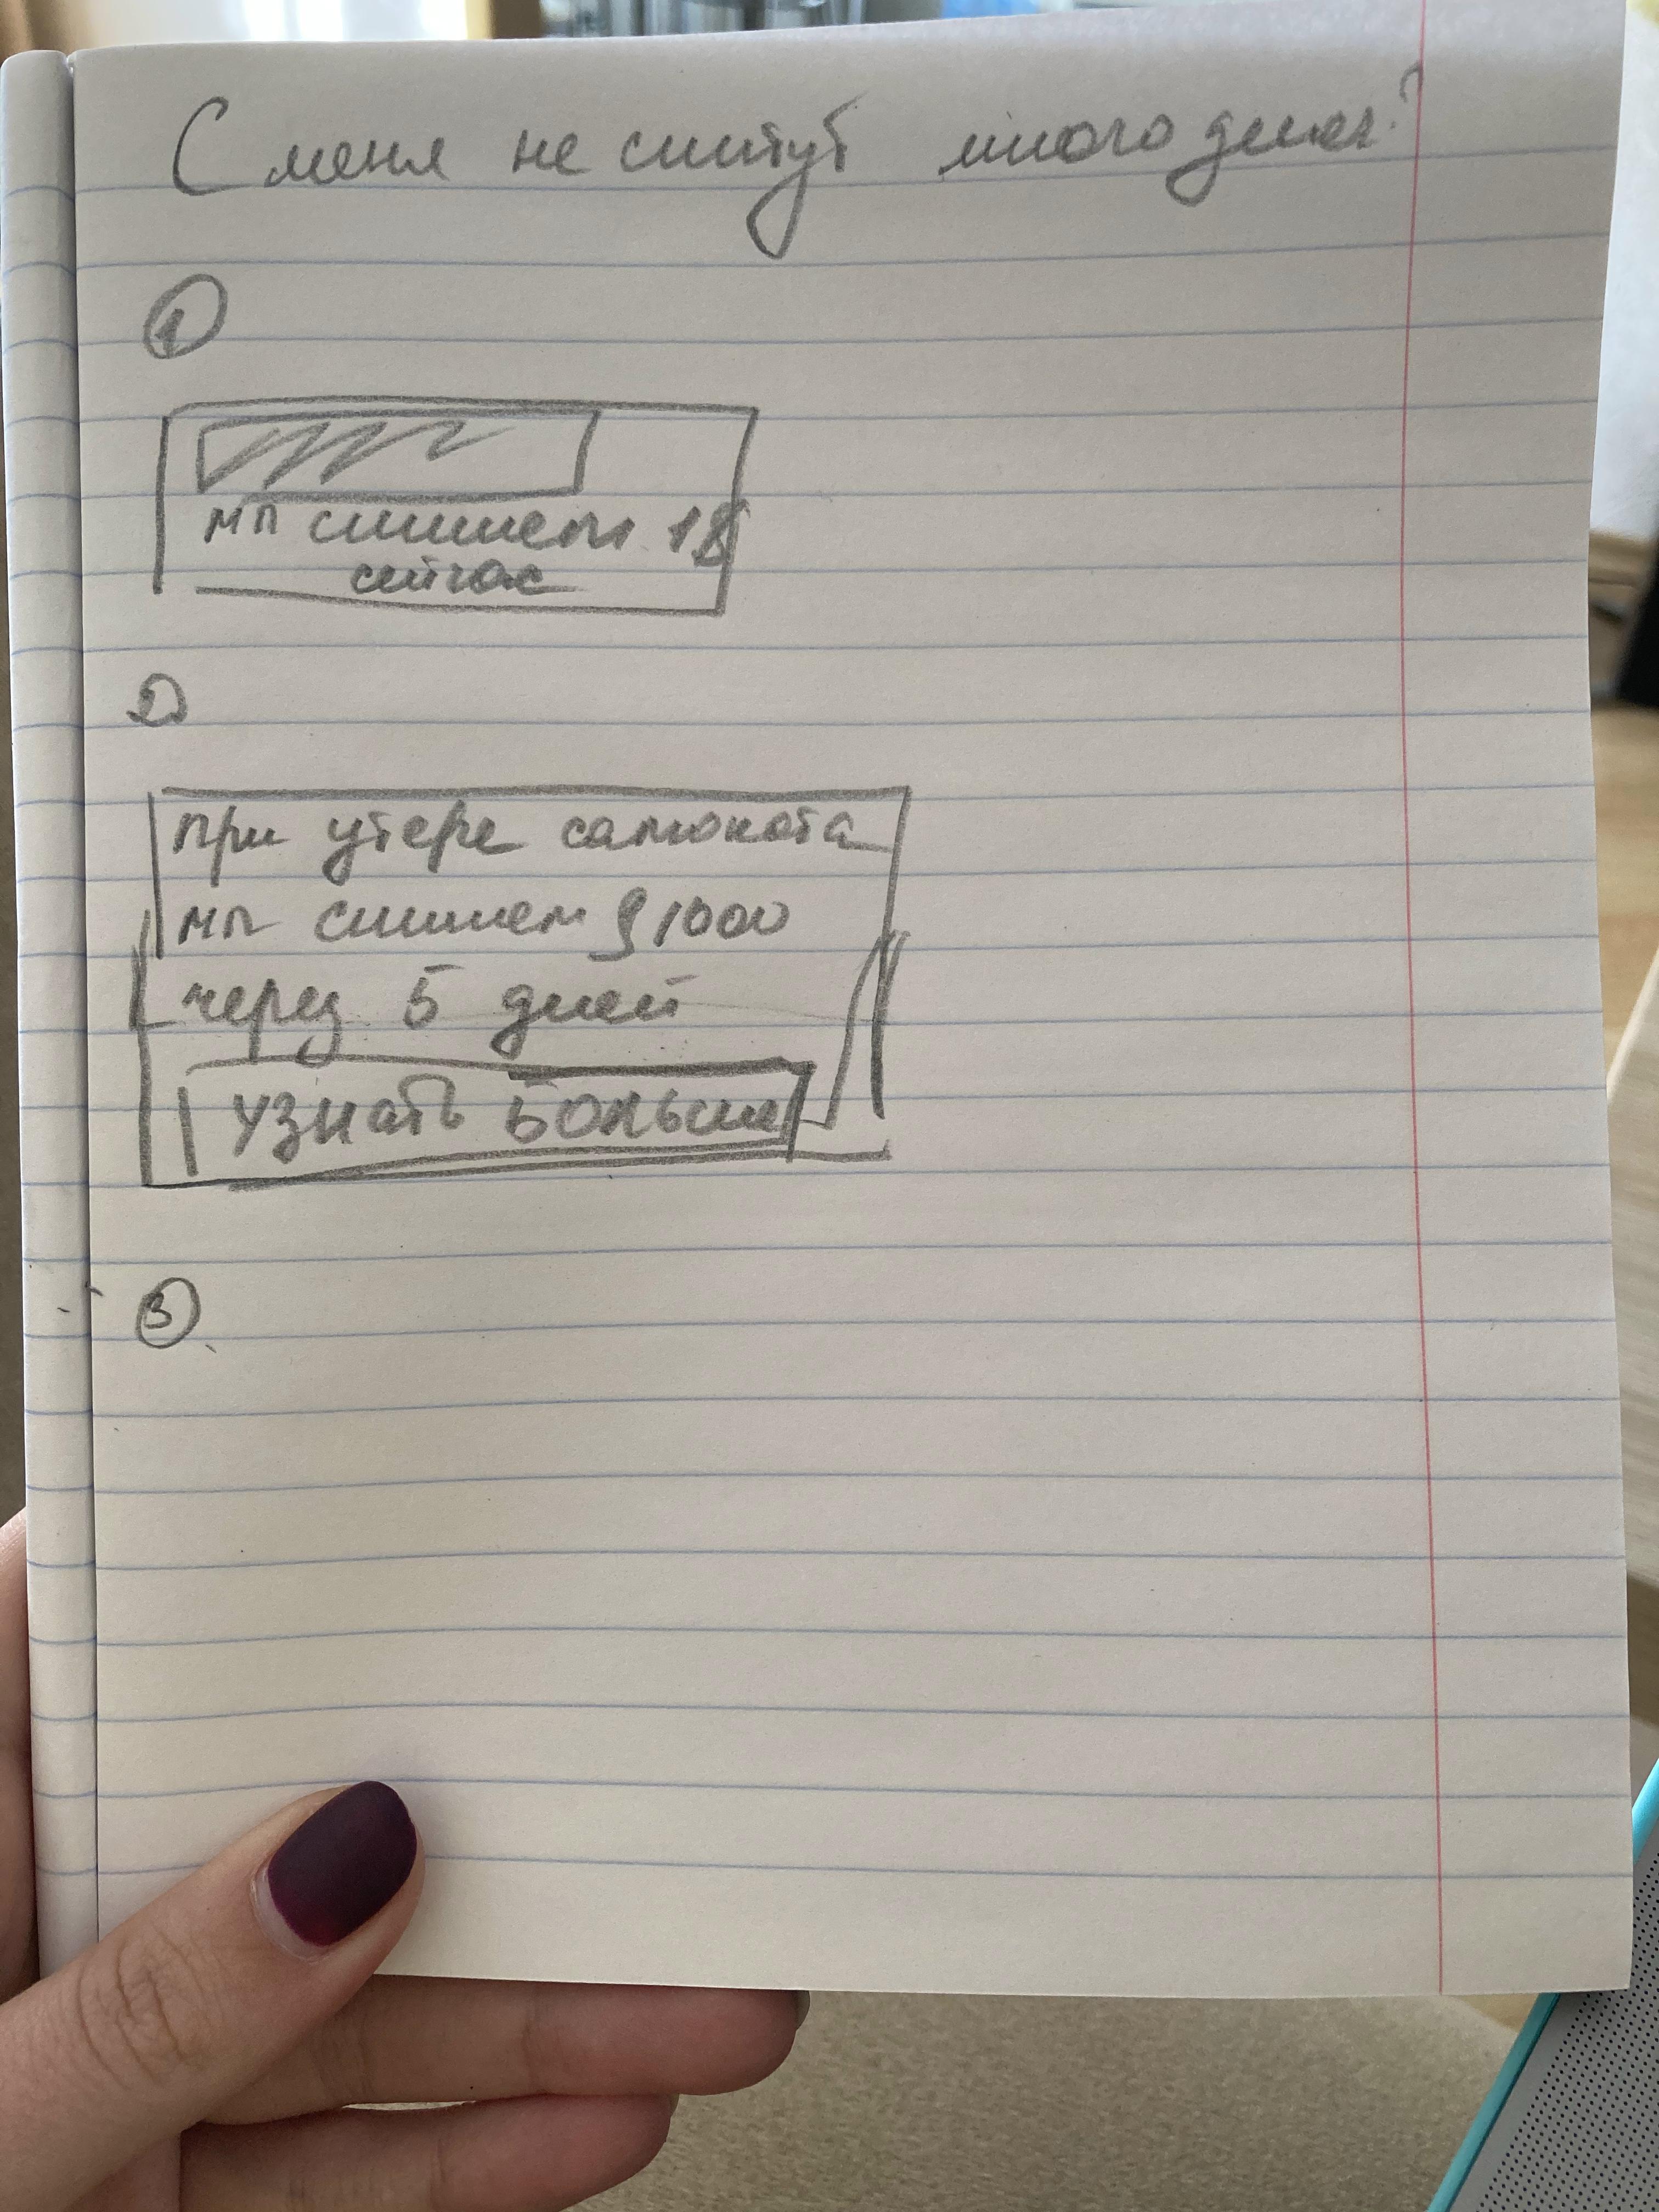 С меня не спишут много денег?
1
мы спишем 1$
сейчас
2
при утере самоката
мы спишем $1000
через 5 дней
Узнать больше
3